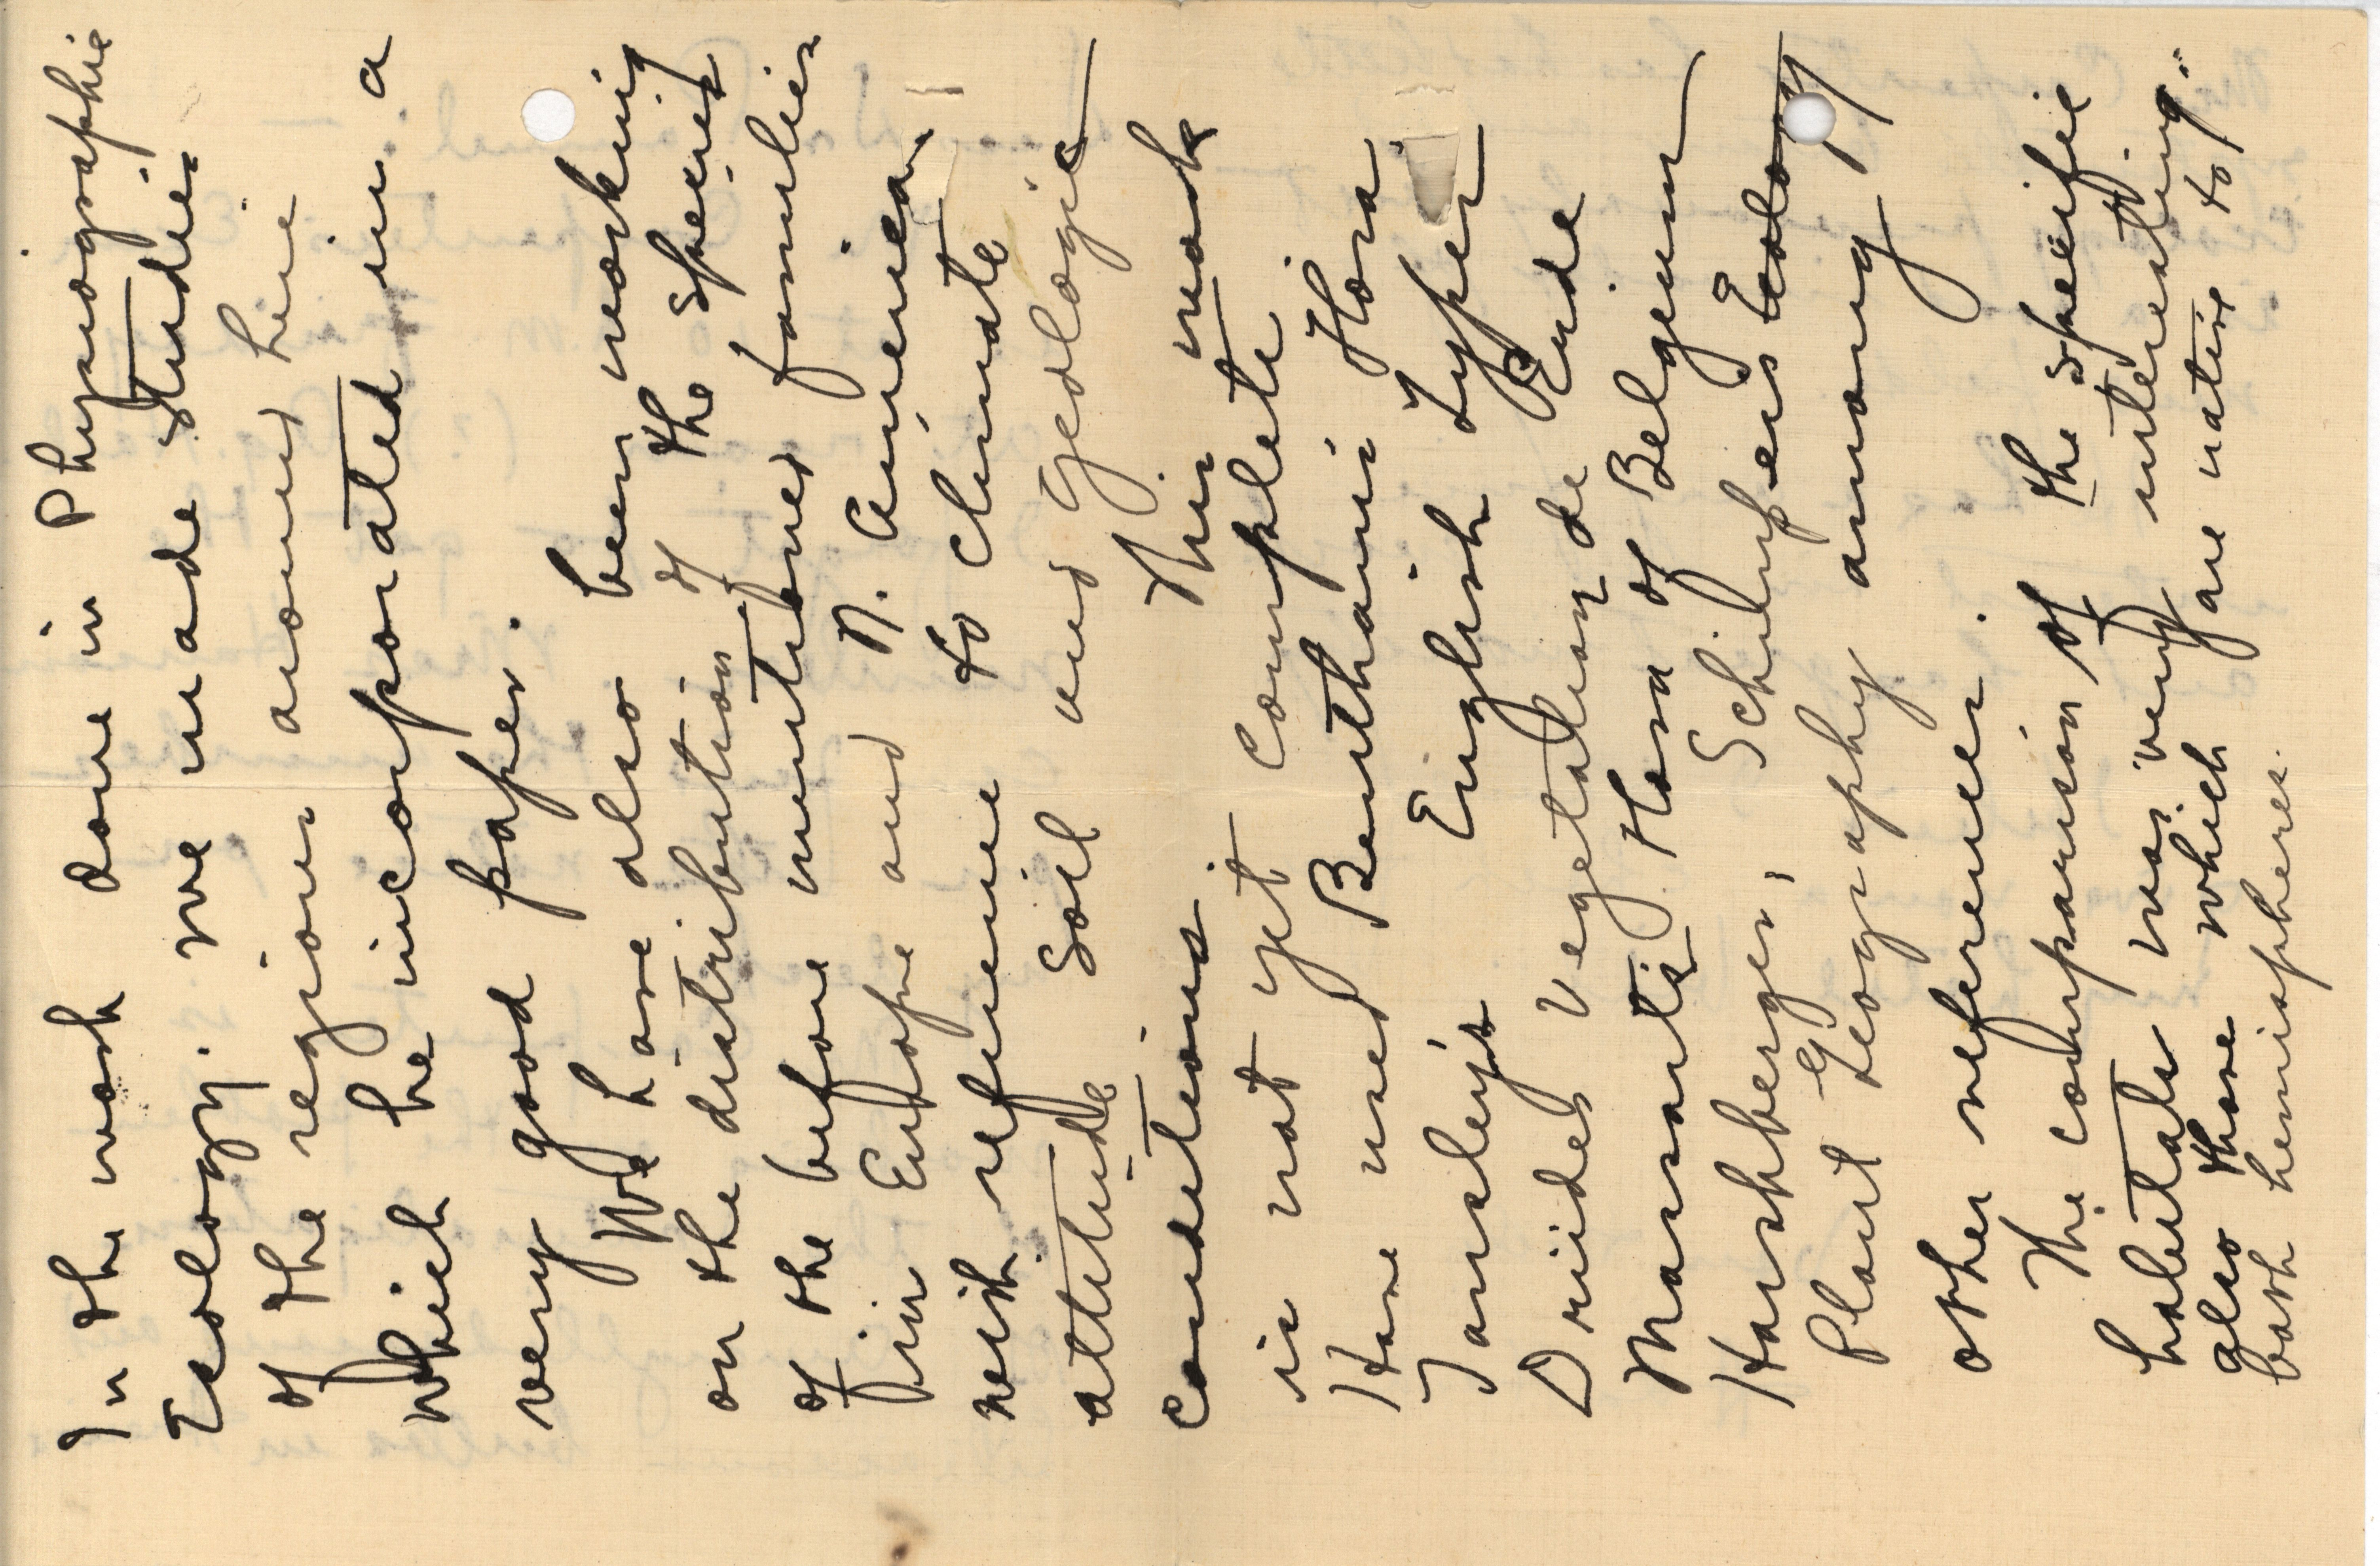 In the work done in Physiographic
Ecology. We made studies
of the regions around here
which he incorporated in a
very good paper.
We have also been working
on the distribution of the species
of the before mentioned families
in Europe and N. America,
with reference to climate
altitude soil and geologic
conditions This work
is not yet complete
Have used Benthams Flora
Tansley's English Types
Druides Vegetation de
Massarts Flora of Belgium
Harshberger, Schimpers Ecology
Plant Geography among
other references.
The comparison of the specific
habitats was very interesting.
also those which are native to
both hemispheres.